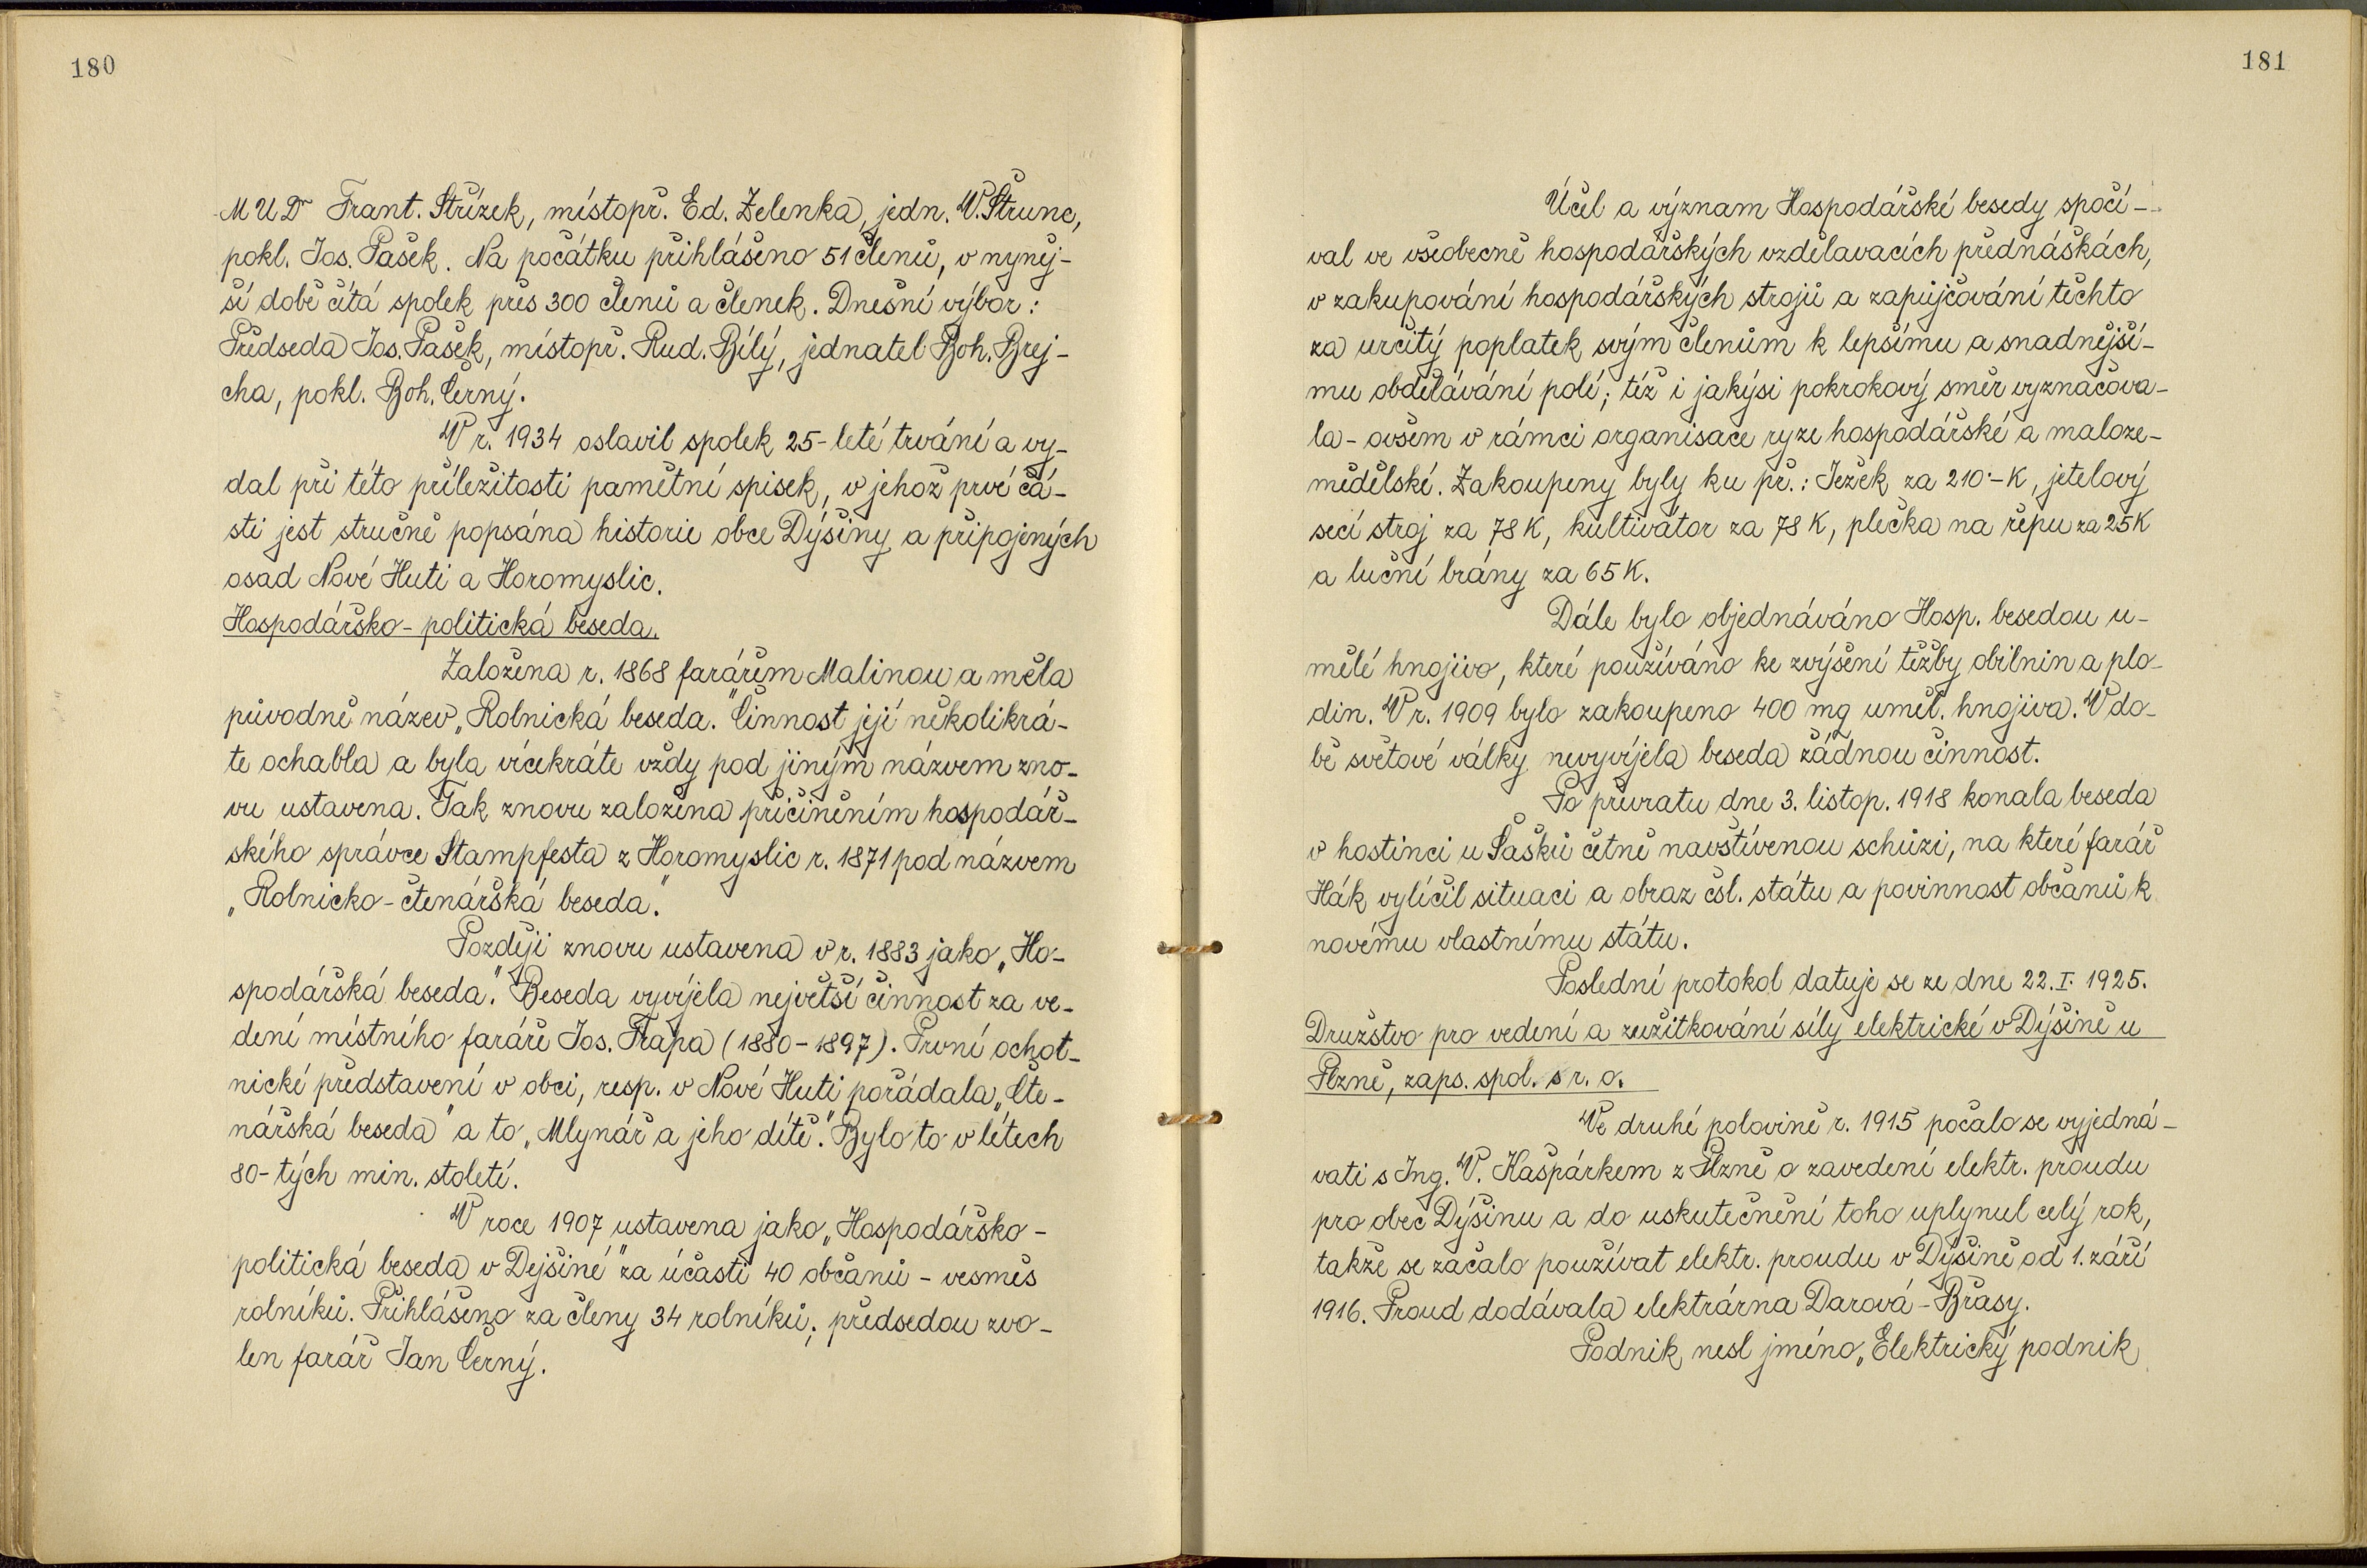 180
MUDr Frant. Střízek, místopř. Ed. Zelenka, jedn. V. Štrunc,
pokl. Jos. Pašek. Na počátku přihlášeno 51 členů, v nyněj-
ší době čítá spolek přes 300 členů a členek. Dnešní výbor:
Předseda Jos. Pašek, místopř. Rud. Bílý, jednatel Boh. Brej-
cha, pokl. Boh. Černý.
V r. 1934 oslavil spolek 25-leté trvání a vy-
dal při této příležitosti pamětní spisek, v jehož prvé čá-
sti jest stručně popsána historie obce Dýšiny a připojených
osad Nové Huti a Horomyslic.
Hospodářsko-politická beseda.
Založena r. 1868 farářem Malinou a měla
původně název „Rolnická beseda." Činnost její několikrá-
te ochabla a byla vícekráte vždy pod jiným názvem zno-
vu ustavena. Tak znovu založena přičiněním hospodář-
ského správce Stampfesta z Horomyslic r. 1871 pod názvem
„Rolnicko-čtenářská beseda."
Později znovu ustavena v r. 1883 jako „Ho-
spodářská beseda." Beseda vyvíjela největší činnost za ve-
dení místního faráře Jos. Frapa (1880-1897). První ochot-
nické představení v obci, resp. v Nové Huti pořádala „Čte-
nářská beseda" a to „Mlynář a jeho dítě." Bylo to v létech
80-tých min. století.
V roce 1907 ustavena jako „Hospodářsko-
politická beseda v Dejšině" za účasti 40 občanů - vesměs
rolníků. Přihlášeno za členy 34 rolníků; předsedou zvo-
len farář Jan Černý.
181
Účel a význam Hospodářské besedy spočí-
val ve všeobecně hospodářských vzdělavacích přednáškách,
v zakupování hospodářských strojů a zapůjčování těchto
za určitý poplatek svým členům k lepšímu a snadnější-
mu obdělávání polí; též i jakýsi pokrokový směr vyznačova-
la - ovšem v rámci organisace ryze hospodářské a maloze-
mědělské. Zakoupeny byly ku př.: Ježek za 210·-K, jetelový
secí stroj za 78 K, kultivátor za 78 K, plečka na řepu za 25 K
a luční brány za 65 K.
Dále bylo objednáváno Hosp. besedou u-
mělé hnojivo, které používáno ke zvýšení těžby obilnin a plo-
din. V r. 1909 bylo zakoupeno 400 mq uměl. hnojiva. V do-
bě světové války nevyvíjela beseda žádnou činnost.
Po převratu dne 3. listop. 1918 konala beseda
v hostinci u Šašků četně navštívenou schůzi, na které farář
Hák vylíčil situaci a obraz čsl. státu a povinnost občanů k
novému vlastnímu státu.
Poslední protokol datuje se ze dne 22. I. 1925.
Družstvo pro vedení a zužitkování síly elektrické v Dýšině u
Plzně, zaps. spol. s r. o.
Ve druhé polovině r. 1915 počalo se vyjedná-
vati s Ing. V. Kašpárkem z Plzně o zavedení elektr. proudu
pro obec Dýšinu a do uskutečnění toho uplynul celý rok,
takže se začalo používat elektr. proudu v Dýšině od 1. září
1916. Proud dodávala elektrárna Darová-Břasy.
Podnik nesl jméno „Elektrický podnik